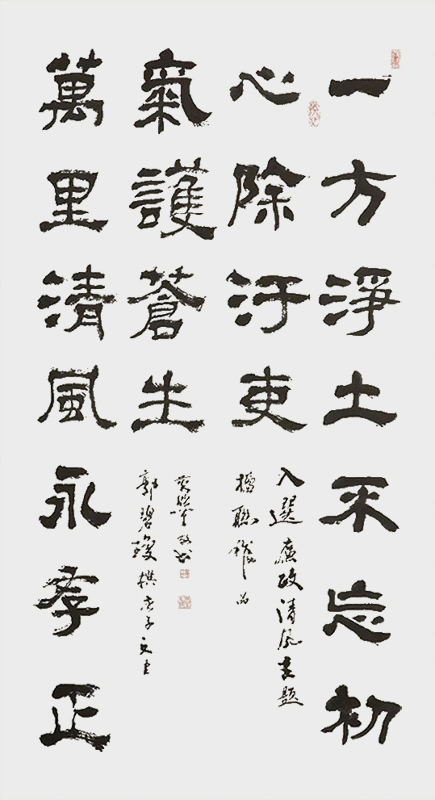 一方淨土不忘初
心除汙吏
入選廉政清風主題
楹聯作品
萬里清風永存正
氣護蒼生
郭碧撰庚子